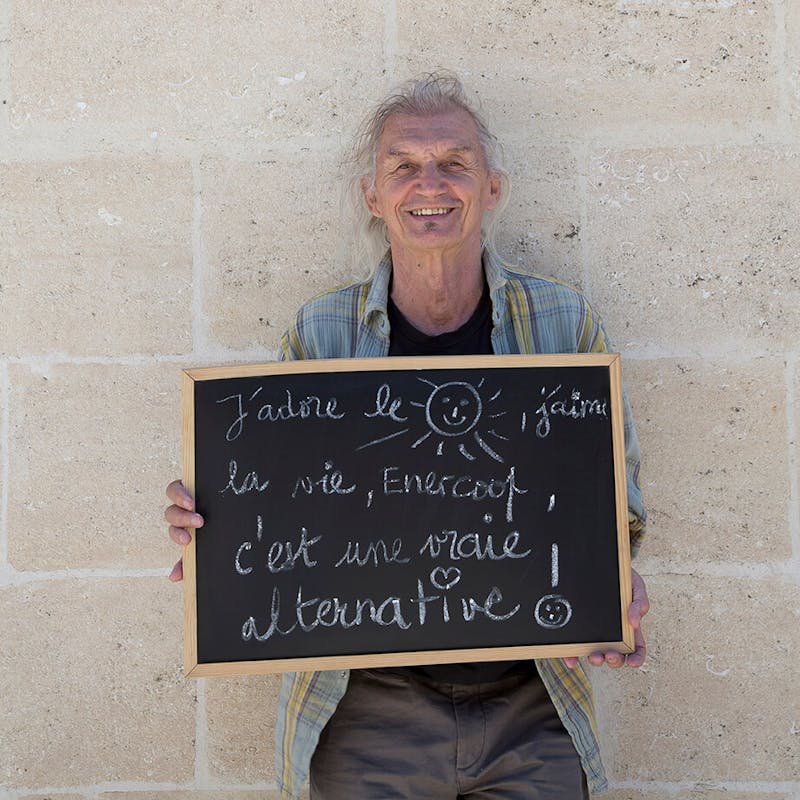 J'adore le , j'aime
la vie, Enercoop,
c'est une vraie
alternative !